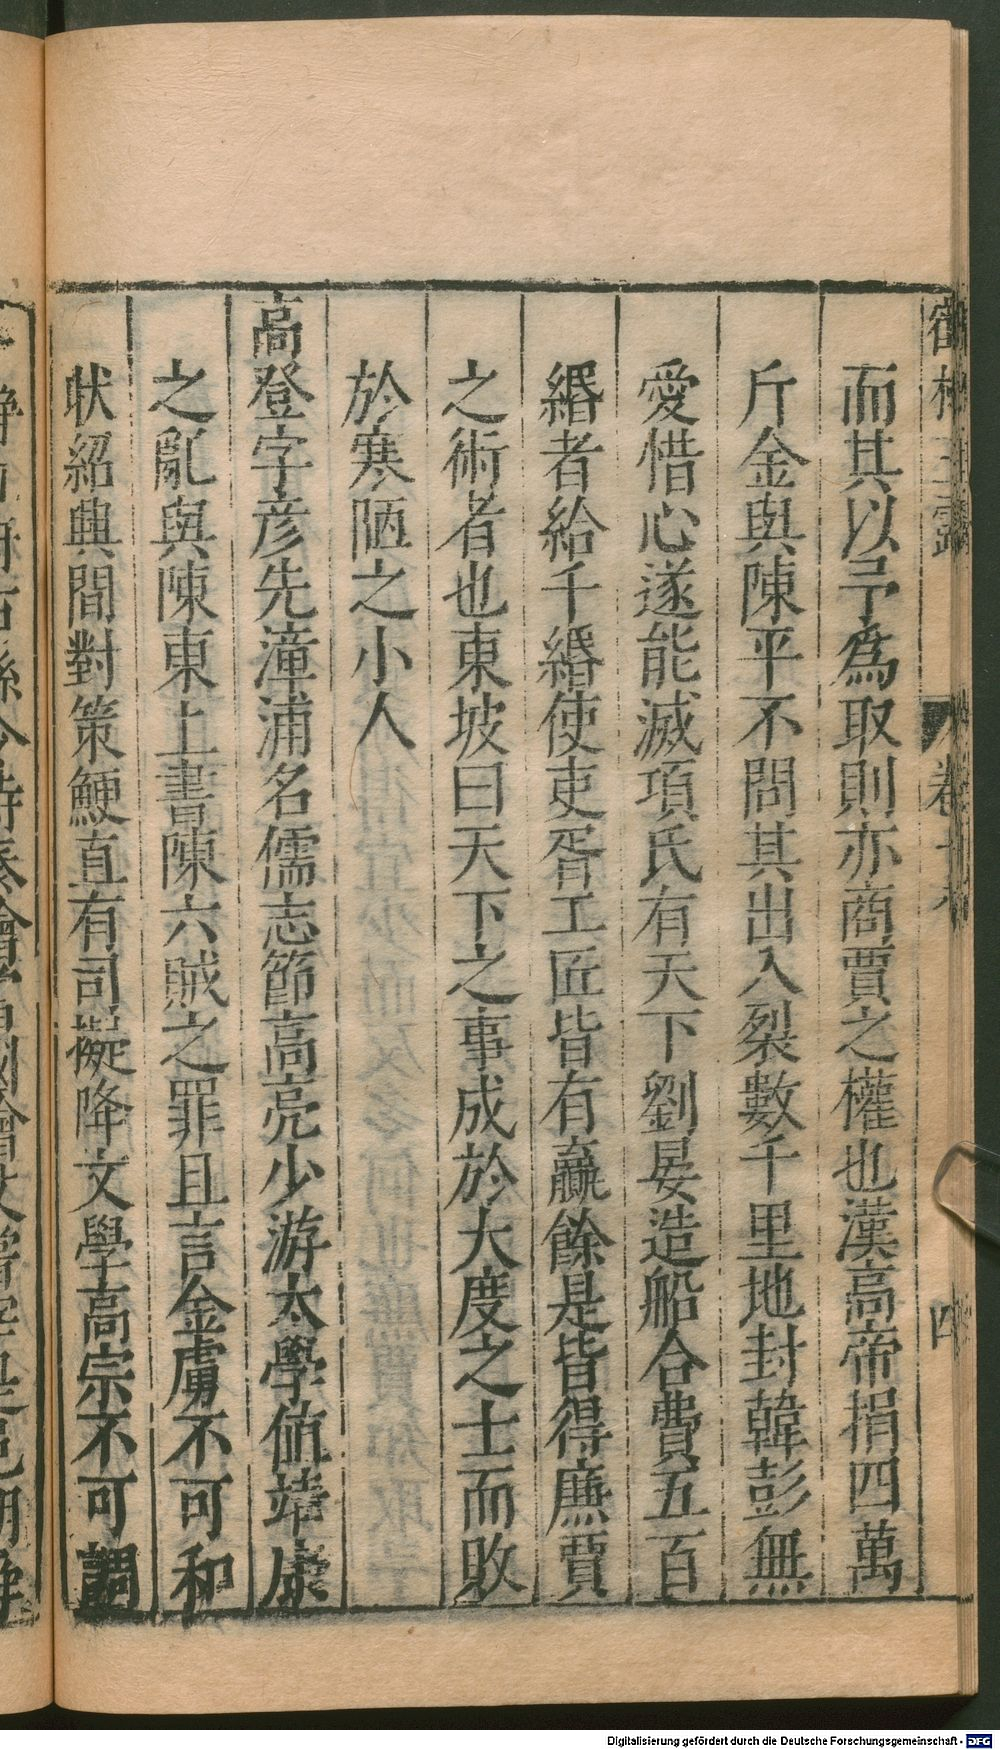 而其以予爲取則亦商賈之權也漢高帝捐四萬
斤金與陳平不問其出入裂數千里地封韓彭無
愛惜心遂能滅項氏有天下劉晏造船合費五百
緡者給千緡使吏胥工匠皆有贏餘是皆得廉賈
之術者也東坡曰天下之事成於大度之士而敗
於寒陋之小人
高登字彦先漳浦名儒志節高亮少游太學值靖康
之亂與陳東上書陳六賊之罪且言金虜不可和
状紹興間對策鯁直有司擬降文學高宗不可調
Digitalisierung gefördert durch die Deutsche Forschungsgemeinschaft - DFG